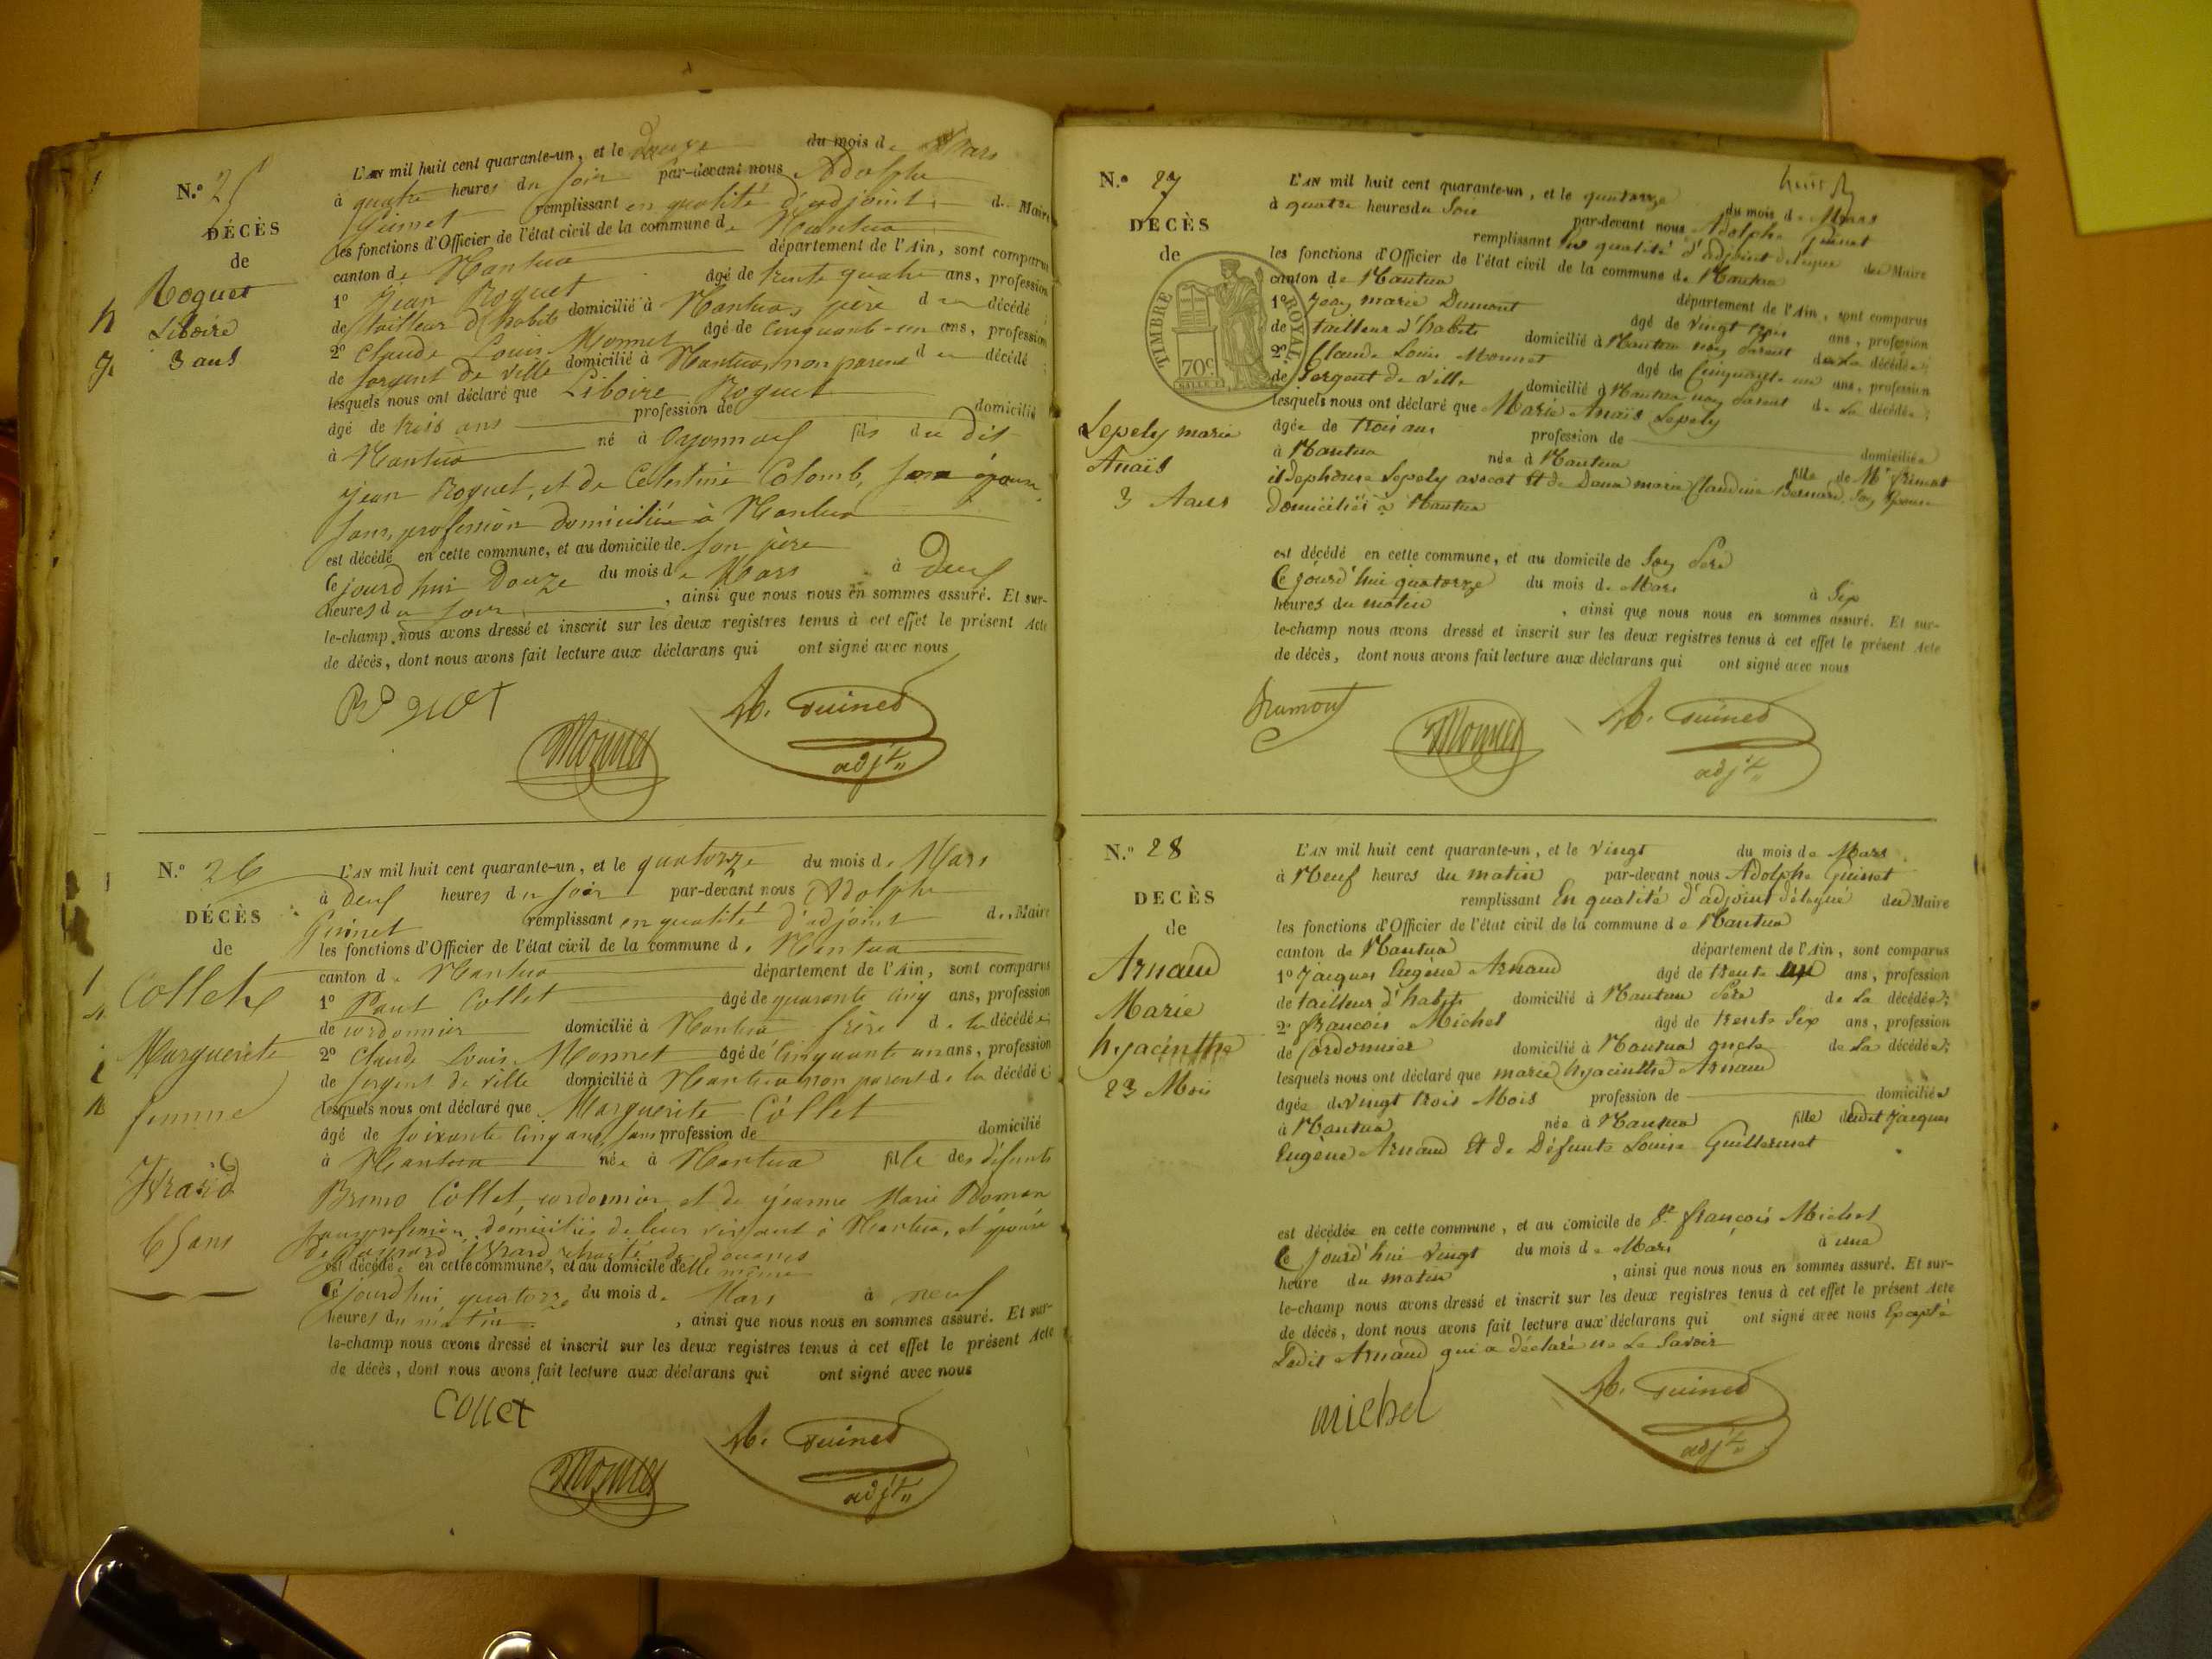 N.º 25
DÉCÈS
de
Roguet
Liboire
3 ans
L'AN mil huit cent quarante-un, et le douze du mois de Mars
à quatre heures du soir par-devant nous Adolphe
Guinet remplissant en qualité d'adjoint du Maire
les fonctions d'Officier de l'état civil de la commune de Nantua
canton de Nantua département de l'Ain, sont comparus
1º Jean Roguet âgé de trente quatre ans, profession
de tailleur d'habits domicilié à Nantua, père du décédé ;
2º Claude Louis Monnet âgé de cinquante-un ans, profession
de sergent de ville domicilié à Nantua, non parent du décédé ;
lesquels nous ont déclaré que Liboire Roguet
âgé de trois ans profession de domicilié
à Nantua né à Oyonnax fils du dit
Jean Roguet, et de Célestine Colomb, son épouse,
sans profession domiciliée à Nantua
est décédé en cette commune, et au domicile de son père
Cejourd'hui Douze du mois de Mars à Deux
heures du soir, ainsi que nous nous en sommes assuré. Et sur-
le-champ nous avons dressé et inscrit sur les deux registres tenus à cet effet le présent Acte
de décès, dont nous avons fait lecture aux déclarans qui ont signé avec nous
Roguet
Monnet
A. Guinet
adjt
N.º 26
DÉCÈS
de
Collet
Marguerite
femme
Ivrard
65 ans
L'AN mil huit cent quarante-un, et le quatorze du mois de Mars
à deux heures du soir par-devant nous Adolphe
Guinet remplissant en qualité d'adjoint du Maire
les fonctions d'Officier de l'état civil de la commune de Nantua
canton de Nantua département de l'Ain, sont comparus
1º Paul Collet âgé de quarante cinq ans, profession
de cordonnier domicilié à Nantua frère de la décédée
2º Claude Louis Monnet âgé de cinquante un ans, profession
de sergent de ville domicilié à Nantua non parent de la décédée
lesquels nous ont déclaré que Marguerite Collet
âgé de soixante cinq ans, sans profession de domicilié
à Nantua née à Nantua fille des défunts
Bruno Collet, cordonnier et de Jeanne Marie Roman
sans profession, domiciliés de leur vivant à Nantua, et épouse
de Ivrard retraité des douanes
est décédée en cette commune, et au domicile delle même
Cejourd'hui quatorze du mois de Mars à neuf
heures du matin, ainsi que nous nous en sommes assuré. Et sur-
le-champ nous avons dressé et inscrit sur les deux registres tenus à cet effet le présent Acte
de décès, dont nous avons fait lecture aux déclarans qui ont signé avec nous
Collet
Monnet
A. Guinet
adjt
N.º 27
DECÈS
de
TIMBRE ROYAL
70c
Lepely marie
Anaïs
3 Aans
L'AN mil huit cent quarante-un, et le quatorze du mois de Mars
à quatre heures du Soir par-devant nous Adolphe Guinet
remplissant en qualité d'adjoint délégué du Maire
les fonctions d'Officier de l'état civil de la commune de Nantua
canton de Nantua département de l'Ain, sont comparus
1º Jean marie Dumont âgé de vingt trois ans, profession
de tailleur d'habits domicilié à Nantua non Parent de La décédée ;
2º Claude Louis Monnet âgé de Cinquante un ans, profession
de Sergent de ville domicilié à Nantua non Parent de La décédée ;
lesquels nous ont déclaré que Marie Anaïs Lepely
âgée de trois ans profession de domiciliée
à Nantua née à Nantua fille de Mr
ildephonse Lepely avocat Et de Dame marie Claudine Bernard, Son Epouse
Domiciliés à Nantua
est décédé en cette commune, et au domicile de Son Père
Cejourd'hui quatorze du mois de Mars à Sep
heures du matin, ainsi que nous nous en sommes assuré. Et sur-
le-champ nous avons dressé et inscrit sur les deux registres tenus à cet effet le présent Acte
de décès, dont nous avons fait lecture aux déclarans qui ont signé avec nous
Dumont
Monnet
A. Guinet
adjt
N.º 28
DECÈS
de
Arnaud
Marie
hyacinthe
23 Mois
L'AN mil huit cent quarante-un, et le Vingt du mois de Mars
à Neuf heures du matin par-devant nous Adolphe Guinet
remplissant En qualité d'adjoint délégué du Maire
les fonctions d'Officier de l'état civil de la commune de Nantua
canton de Nantua département de l'Ain, sont comparus
1º Jacques Eugène Arnaud âgé de trente un ans, profession
de tailleur d'habits domicilié à Nantua Père de La décédée ;
2º françois Michel âgé de trente Six ans, profession
de Cordonnier domicilié à Nantua oncle de La décédée ;
lesquels nous ont déclaré que marie hyacinthe Arnaud
âgée de vingt trois Mois profession de domiciliée
à Nantua née à Nantua fille dudit Jacques
Eugène Arnaud Et de Défunte Louise Guillermet
est décédée en cette commune, et au domicile de Sr françois Michel
Cejourd'hui Vingt du mois de Mars à une
heure du matin, ainsi que nous nous en sommes assuré. Et sur-
le-champ nous avons dressé et inscrit sur les deux registres tenus à cet effet le présent Acte
de décès, dont nous avons fait lecture aux déclarans qui ont signé avec nous Excepté
Ledit Arnaud qui a déclaré ne Le Savoir
michel
A. Guinet
adjt